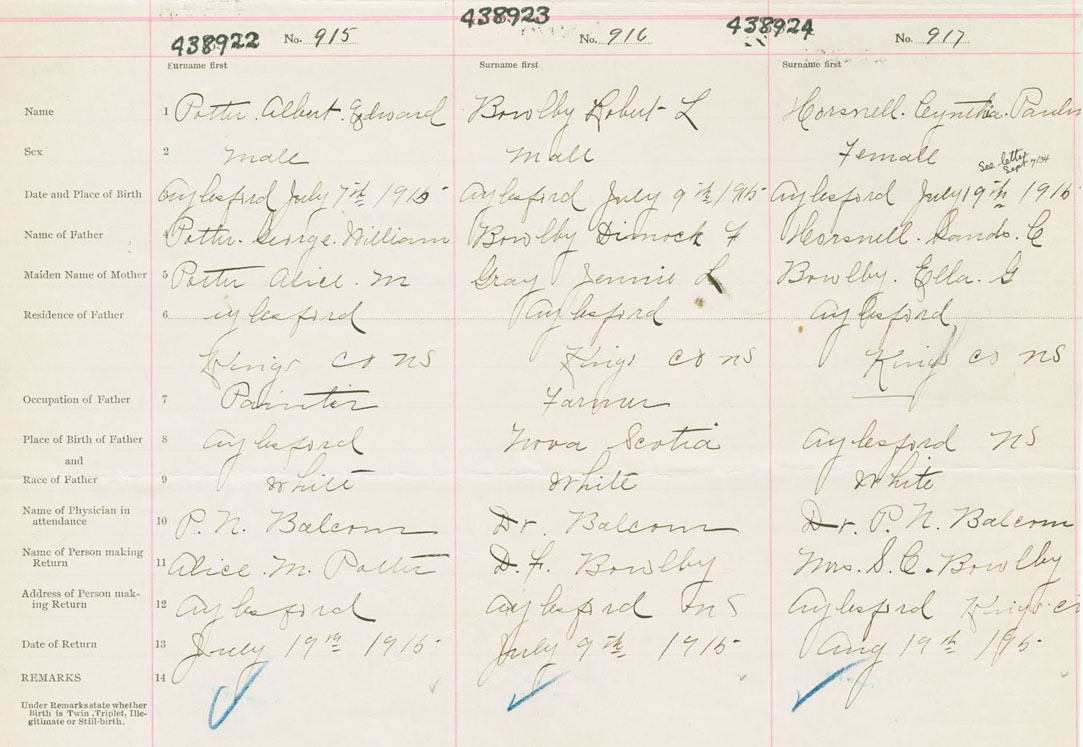 438922 No. 915 438923 No. 916 438924 No. 917
Surname first Surname first Surname first
Name 1 Potter. Albert. Edward Bowlby Robert L Horsnell. Cynthia. Paulin
Sex 2 Male Male Female
See letter
Sept 7/34
Date and Place of Birth 3 Aylesford July 7th 1915 Aylesford July 9th 1915 Aylesford July 19th 1915
Name of Father 4 Potter. George. William Bowlby Dimock F Horsnell. Sands. C
Maiden Name of Mother 5 Potter Alice. M Gray Jennie L Bowlby. Ella. G
Residence of Father 6 Aylesford Aylesford Aylesford
Kings Co NS Kings Co NS Kings Co NS
Occupation of Father 7 Painter Farmer
Place of Birth of Father 8 Aylesford Nova Scotia Aylesford NS
and
Race of Father 9 White White White
Name of Physician in
attendance 10 P. N. Balcom Dr. Balcom Dr. P. N. Balcom
Name of Person making
Return 11 Alice. M. Potter D. F. Bowlby Mrs. S. C. Bowlby
Address of Person mak-
ing Return 12 Aylesford Aylesford NS Aylesford Kings. Co
Date of Return 13 July 19th 1915 July 9th 1915 Aug 19th 1915
REMARKS 14
Under Remarks state whether
Birth is Twin, Triplet, Ille-
gitimate or Still-birth.